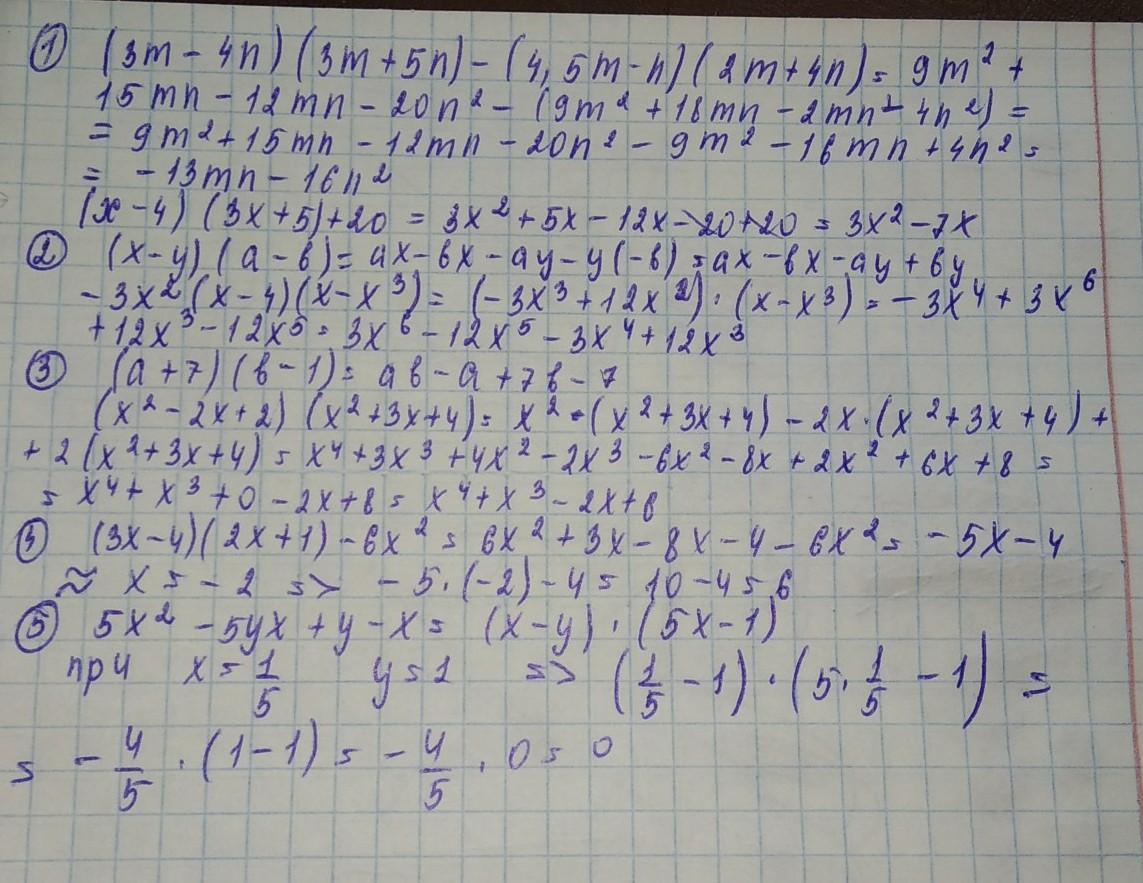 ① (3m − 4n)(3m + 5n) − (4,5m − n)(2m + 4n) = 9m² +
15mn − 12mn − 20n² − (9m² + 18mn − 2mn − 4n²) =
= 9m² + 15mn − 12mn − 20n² − 9m² − 16mn + 4n² =
= −13mn − 16n²
(x − 4)(3x + 5) + 20 = 3x² + 5x − 12x − 20 + 20 = 3x² − 7x
② (x − y)(a − b) = ax − bx − ay − y(−b) = ax − bx − ay + by
−3x²(x − 4)(x − x³) = (−3x³ + 12x²) · (x − x³) = −3x⁴ + 3x⁶
+ 12x³ − 12x⁵ = 3x⁶ − 12x⁵ − 3x⁴ + 12x³
③ (a + 7)(b − 1) = ab − a + 7b − 7
(x² − 2x + 2)(x² + 3x + 4) = x² · (x² + 3x + 4) − 2x · (x² + 3x + 4) +
+ 2(x² + 3x + 4) = x⁴ + 3x³ + 4x² − 2x³ − 6x² − 8x + 2x² + 6x + 8 =
= x⁴ + x³ + 0 − 2x + 8 = x⁴ + x³ − 2x + 8
④ (3x − 4)(2x + 1) − 6x² = 6x² + 3x − 8x − 4 − 6x² = −5x − 4
≈ x = −2 => −5 · (−2) − 4 = 10 − 4 = 6
⑤ 5x² − 5yx + y − x = (x − y) · (5x − 1)
при x = 1/5 y = 1 => (1/5 − 1) · (5 · 1/5 − 1) =
= −4/5 · (1 − 1) = −4/5 · 0 = 0